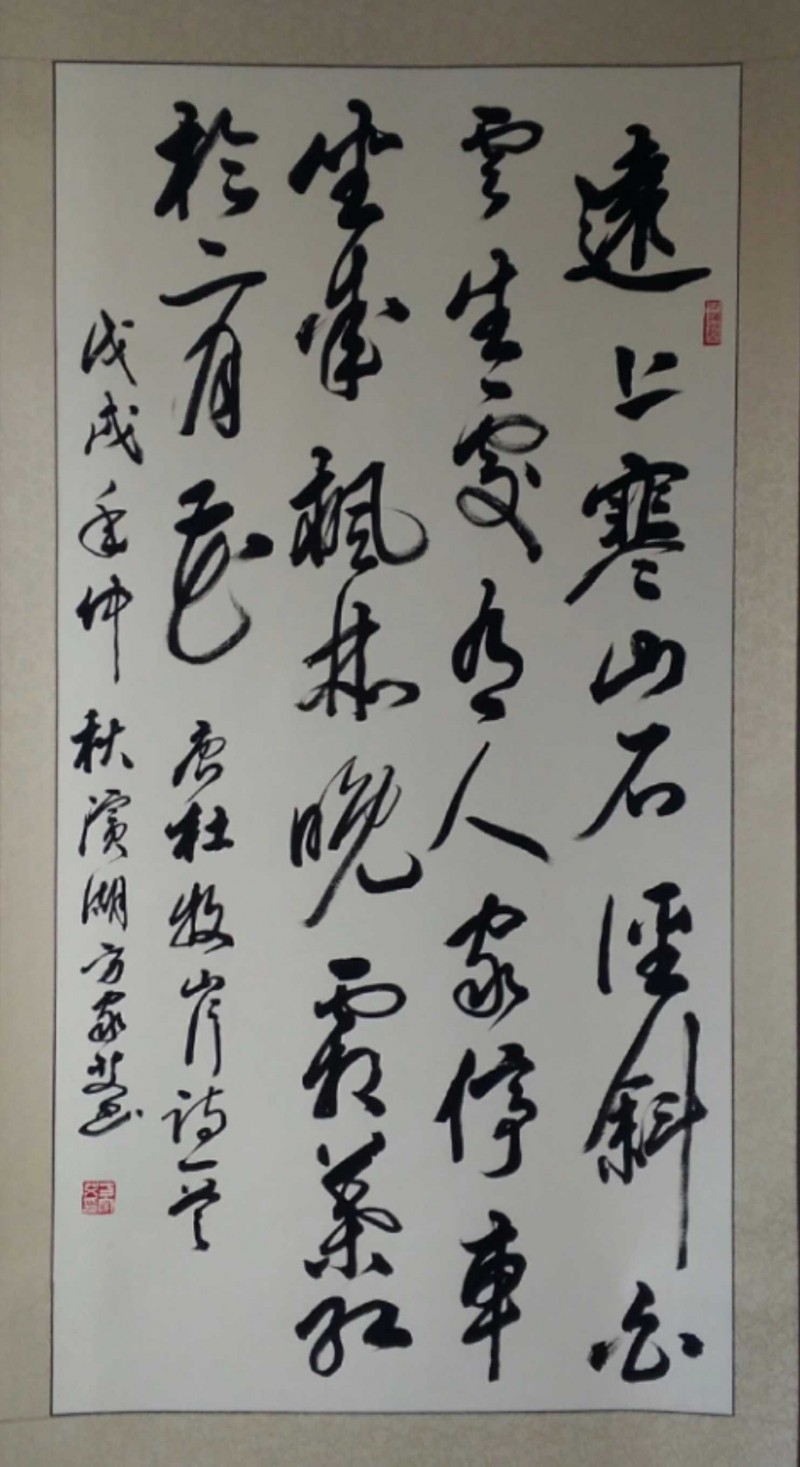 遠上寒山石徑斜白
雲生處有人家停車
坐愛楓林晚霜葉紅
於二月花 唐杜牧山行詩一首
戊戌年仲秋濱湖方家書